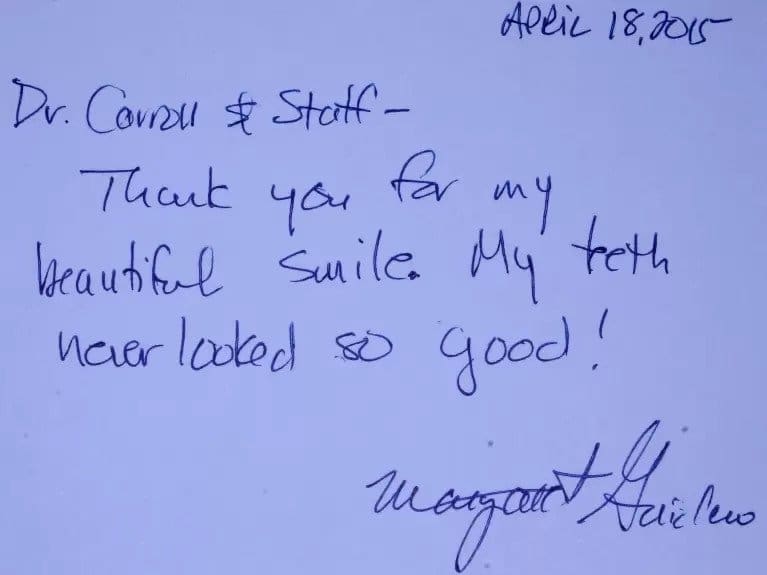 APRIL 18, 2015
Dr. Carroll & Staff -
Thank you for my
beautiful smile. My teeth
never looked so good!
Margaret